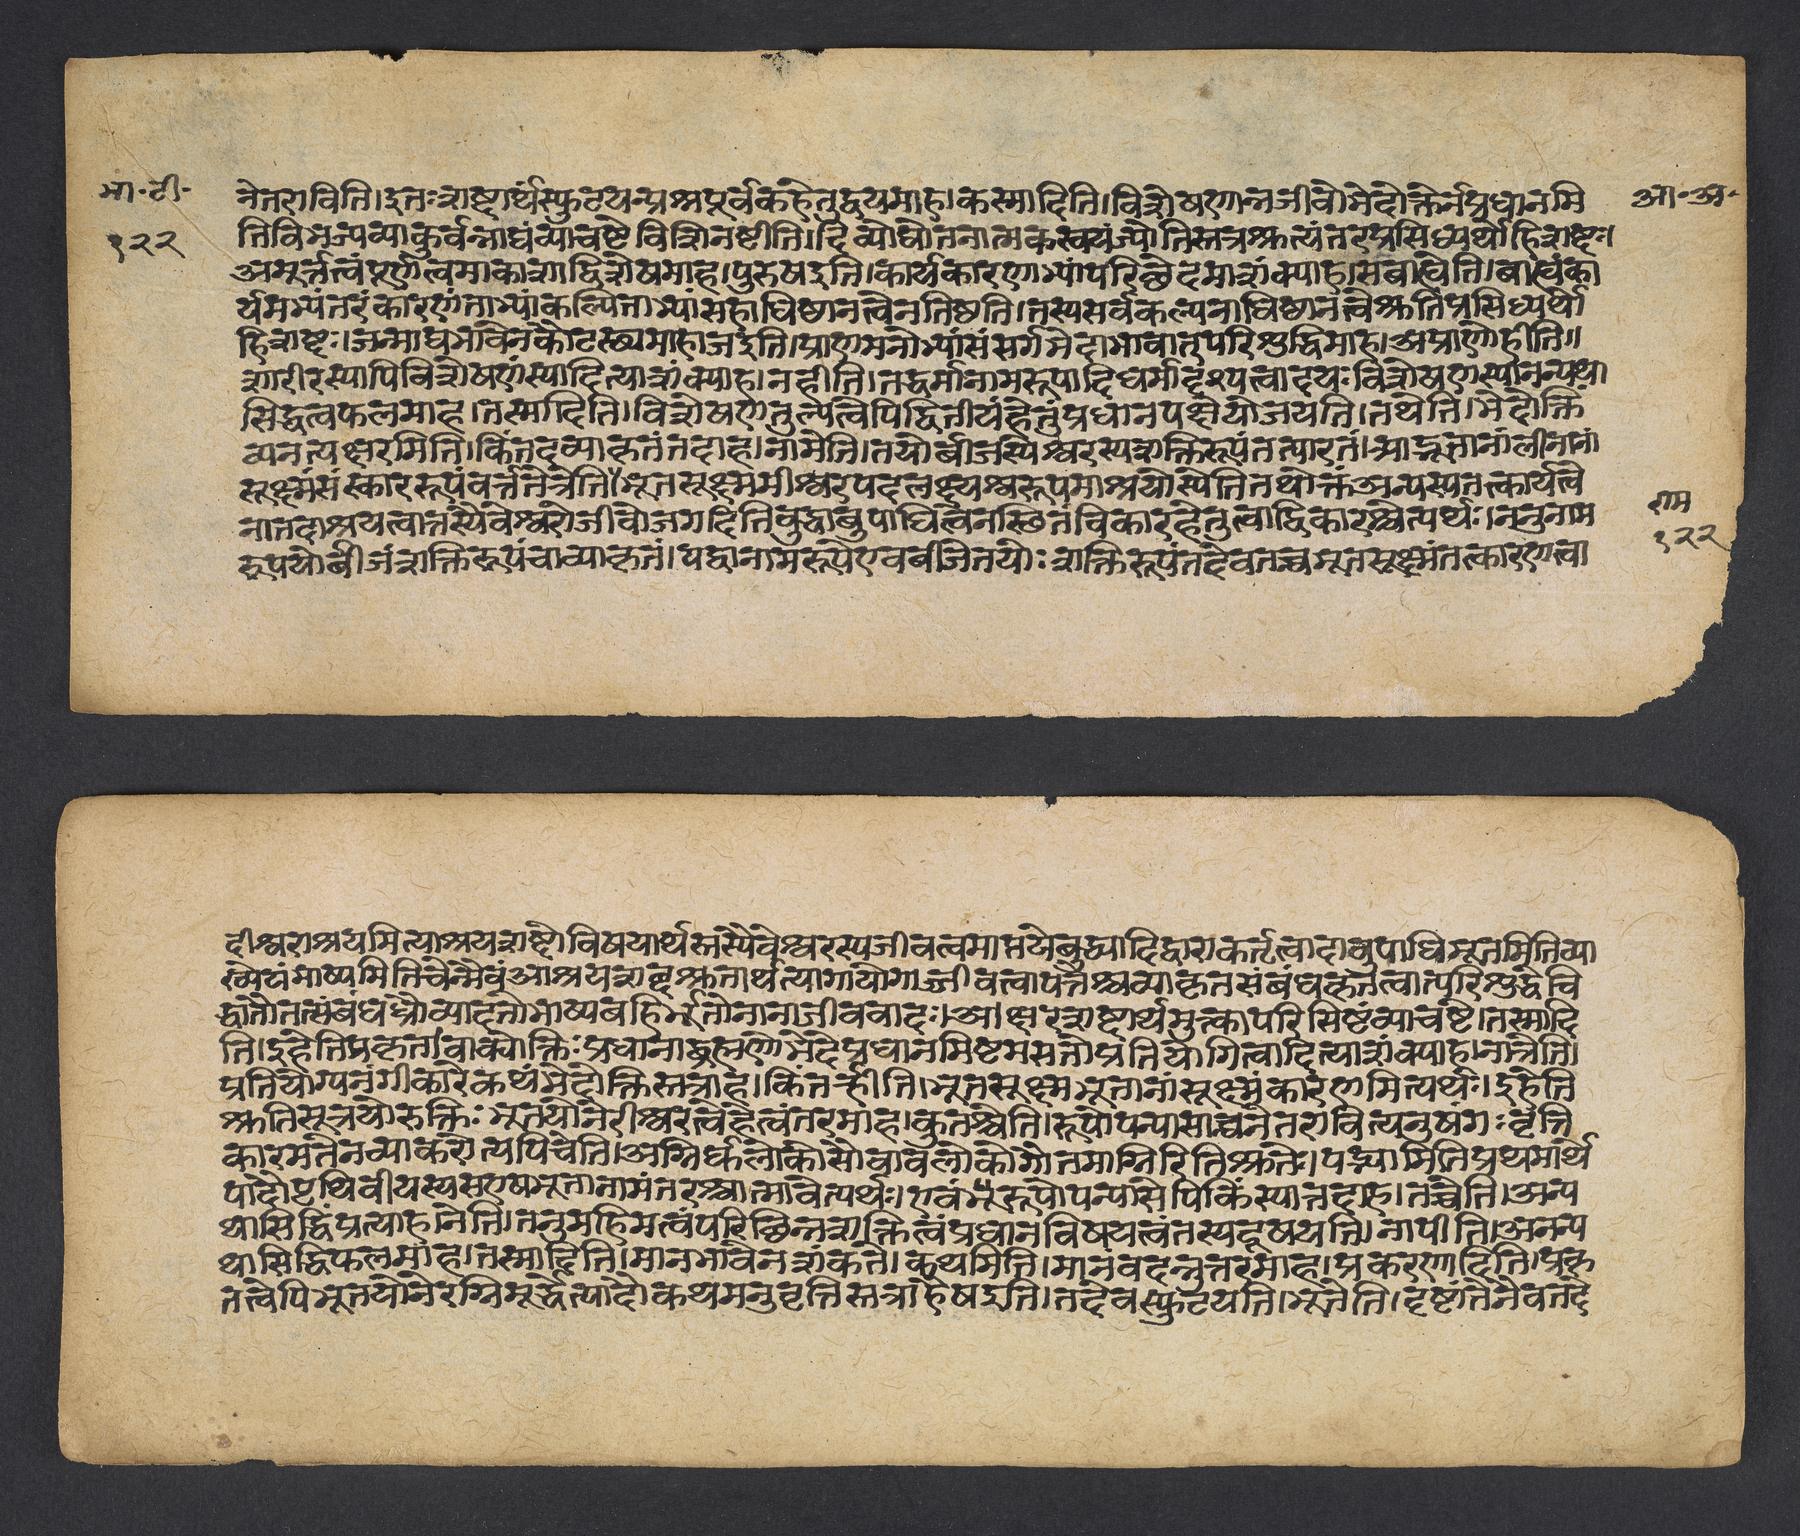 भा॰टी॰
१२२
आ॰अ॰
राम
१२२
नेतराविति।इतःशब्दार्थंस्फुटयन्प्रश्नपूर्वकंहेतुद्वयमाह।कस्मादिति।विशेषणान्नजीवोभेदोक्तेर्नप्रधानमि
तिविभज्यव्याकुर्वन्नाद्यंव्याचष्टेविशिनष्टीति।दिव्योद्योतनात्मकस्वयंज्योतिस्तत्रश्रुत्यंतरप्रसिध्यर्थोहिशब्दः।
अमूर्त्तत्वंपूर्णत्वमाकाशाद्विशेषमाह।पुरुषइति।कार्यकारणाभ्यांपरिछेदमाशंक्याह।सबाह्येति।बाह्यंका
र्यमभ्यंतरंकारणंताभ्यांकल्पिताभ्यांसहाधिष्ठानत्वेनतिष्ठति।तस्यसर्वकल्पनाधिष्ठानत्वेश्रुतिप्रसिध्यर्थो
हिशब्दः।जन्माद्यभावेनकौटस्थ्यमाह।अजइति।प्राणमनोभ्यांसंसर्गभेदाभावात्परिशुद्धिमाह।अप्राणोहीति॥
शारीरस्यापिविशेषणंस्यादित्याशंक्याह।नहीति।तद्धर्मानामरूपादिधर्मादृश्यत्वादयःविशेषणस्यानन्यथा
सिद्धत्वफलमाह।तस्मादिति।विशेषणतुल्यत्वेपिद्वितीयंहेतुंप्रधानपक्षेयोजयति।तथेति।भेदोक्तिं
व्यनत्यक्षरमिति।किंतदव्याकृतंतदाह।नामेति।तयोर्बीजस्येश्वरस्यशक्तिरूपंतत्पारतं।आद्भूतानांलीनानां
सूक्ष्मंसंस्काररूपंवर्त्ततेत्रेति॥भूतसूक्ष्ममीश्वरपदलक्ष्यश्वरूपमाश्रयोस्येतितथोक्तंअन्यस्यतत्कार्यत्वे
नातदाश्रयत्वात्तस्यैवेश्वरोजीवोजगदितिबुद्धाबुपाधित्वेनस्थितंविकारहेतुत्वाद्विकारश्चेत्यर्थः।ननुनाम
रूपयोर्बीजंशक्तिरूपंचाव्याकृतं।यद्वानामरूपेएवबीजेतयोःशक्तिरूपंतदेवतच्चभूतसूक्ष्मंतत्कारणत्वा
दीश्वराश्रयमित्याश्रयशब्दोविषयार्थस्तस्यैवेश्वरस्यजीवत्वमाप्तयेबुध्यादिद्वाराकर्तृत्वादावुपाधिभूतमितिव्या
ख्येयंभाष्यमितिचेन्मैवंआश्रयशब्दश्रुतार्थत्यागायोगाज्जीवत्वापत्तेश्चाव्याकृतसंबंधकृतत्वात्परिशुद्धेचि
द्धातौतत्संबंधध्रौव्यादतोभाष्यबहिर्भूतोनानाजीववादः।अक्षरशब्दार्थमुत्कापरिसिष्टंव्याचष्टे।तस्मादि
ति।इहेतिप्रकृतावाक्योक्तिःप्रधानाद्ब्रह्मणोभेदेप्रधानमिष्टमसतोप्रतियोगित्वादित्याशंक्याह।नात्रेति।
प्रतियोग्यनंगीकारेकथंभेदोक्तिस्तत्राह।किंतर्हीति।भूतसूक्ष्मभूतानांसूक्ष्मंकारणमित्यर्थः।इहेति
श्रुतिसूत्रयोरुक्तिःभूतयोनेरीश्वरत्वेहेत्वंतरमाह।कुतश्चेति।रूपोपन्यासाच्चनेतरावित्यनुषंगःवृत्ति
कारमतेनव्याकरोत्यपिचेति।अग्निर्द्युलोकोसौवावलोकोगौतमाग्निरितिश्रुतेः।पद्भ्यामितिप्रथमार्थे
पादौपृथिवीयस्यसएषभूतानामंतरश्चात्मावेत्यर्थः।एवंभूरूपोपन्यासेपिकिंस्यात्तदाह।तच्चेति।अन्य
थासिद्धिंप्रत्याहनेति।तनुमहिमत्वंपरिछिन्नशक्तित्वंप्रधानविषयत्वंतस्यदूषयति।नापीति।अनन्य
थासिद्धिफलमाह।तस्मादिति।मानभावेनशंकते।कथमिति।मानंवदन्नुत्तरमाह।प्रकरणादिति।प्रकृ
तत्वेपिभूतयोनेरग्निमूर्द्धेत्यादौकथमनुवृत्तिस्तत्राहैषइति।तदेवस्फुटयति।भूतेति।दृष्टांतेनैवतदे